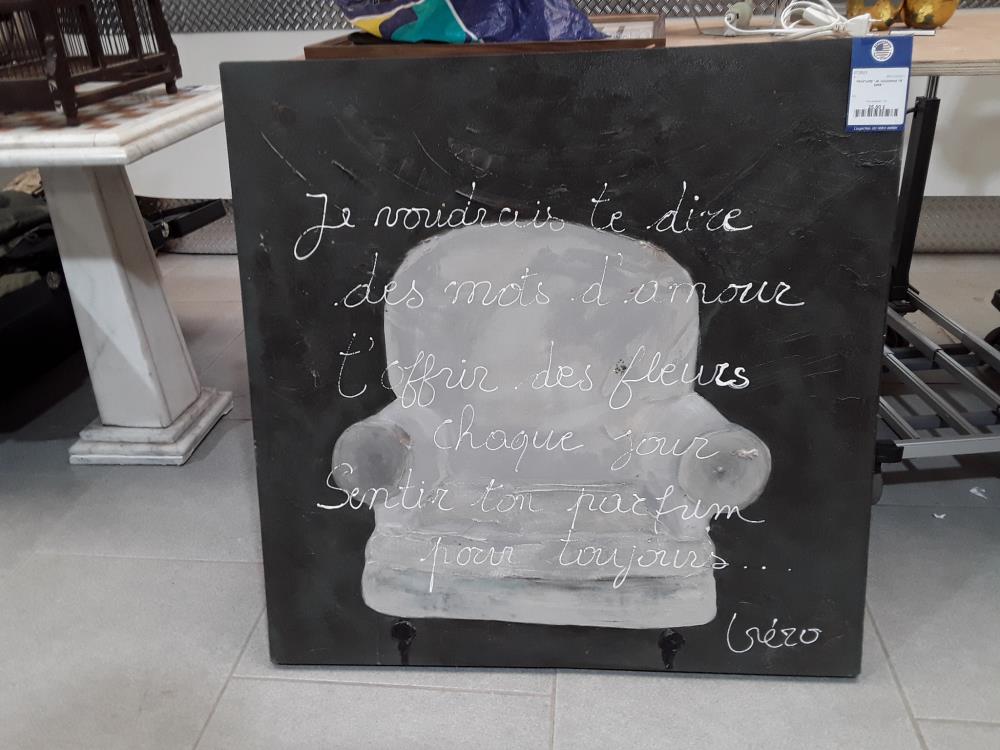 Je voudrais te dire
des mots d'amour
t'offrir des fleurs
chaque jour
Sentir ton parfum
pour toujours...
Géro